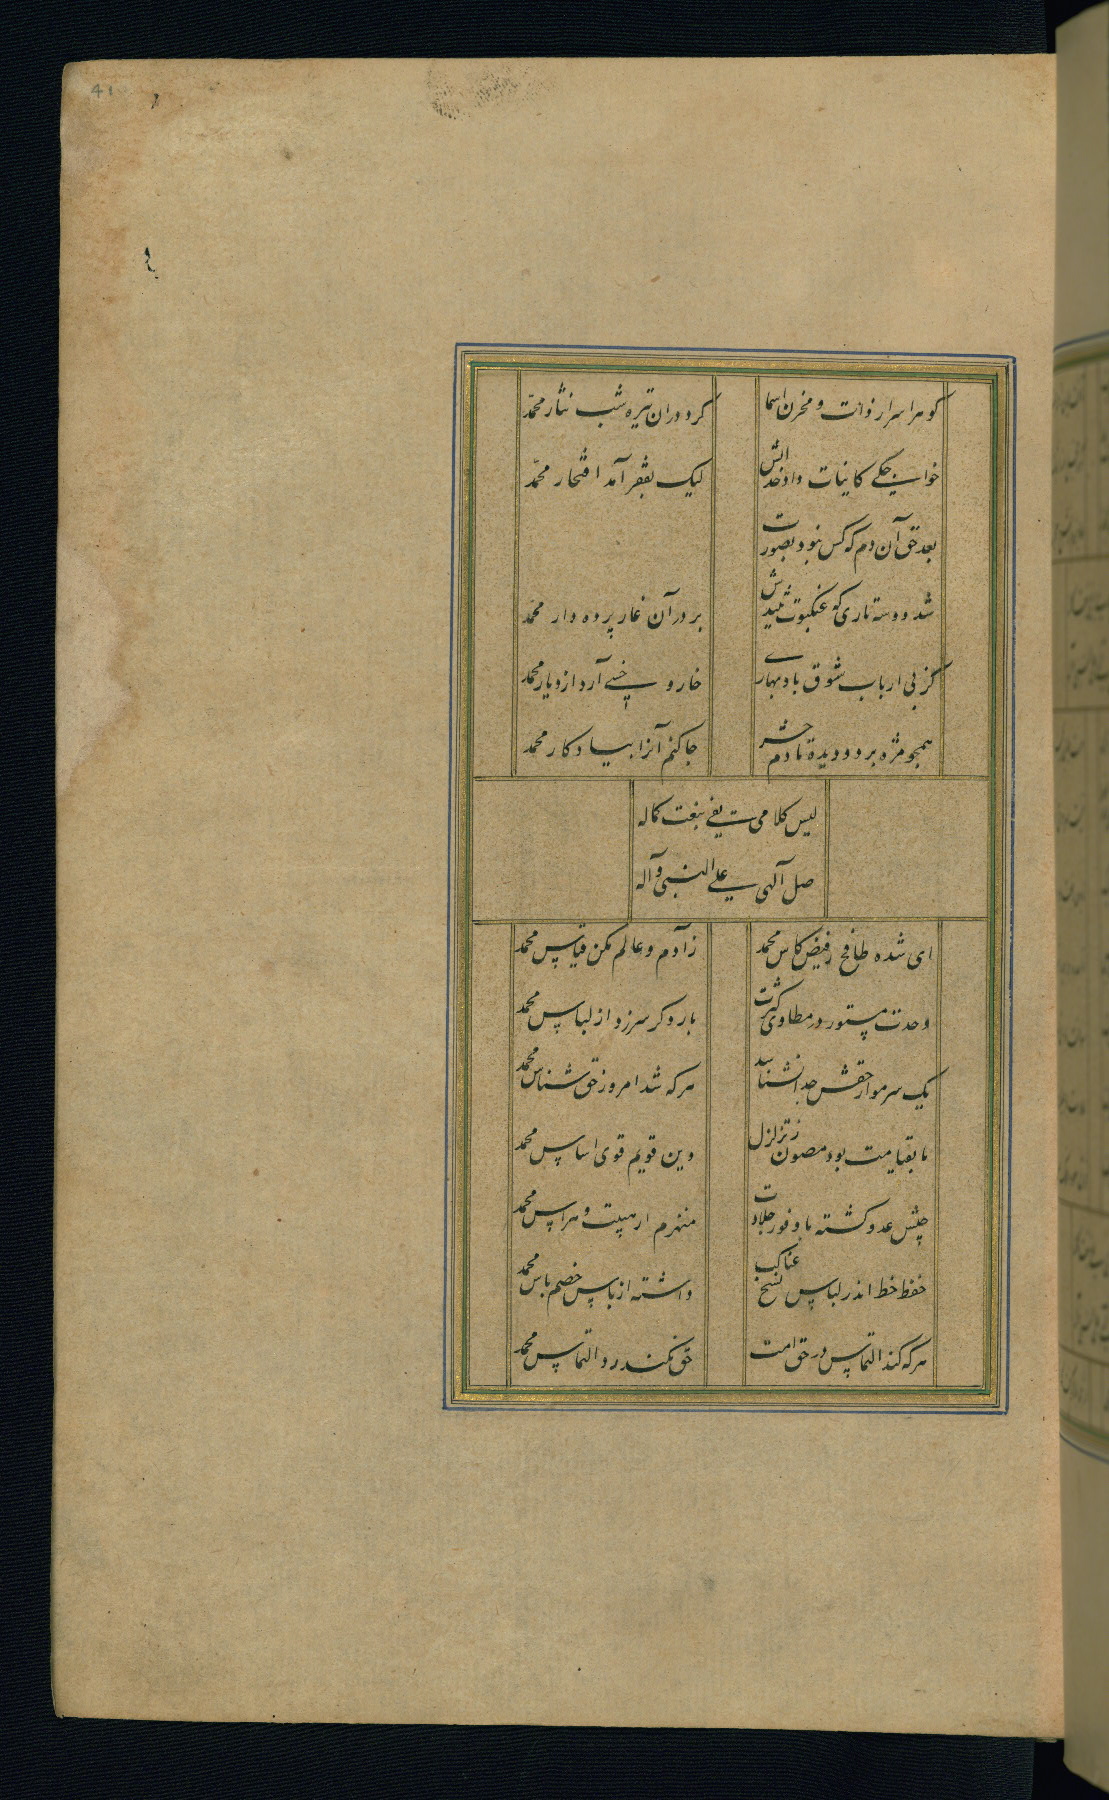 41
گوهر اسرار ذات و مخزن اسما
کرد در آن تیره شب نثار محمد
خواست حکمی کاینات داد خدایش
لیک بفقر آمد افتخار محمد
بعد حق آن دم که کس نبود بصورت
شد دو سه تاری که عنکبوت تنیدش
بر در آن غار پرده دار محمد
گر پی ارباب شوق باد بهاری
خار و خسی آرد از دیار محمد
همچو مژه بر دو دیده تا دم حشر
جا کنم آنرا بیادگار محمد
لیس کلامی یفی بنعت کماله
صل الهی علی النبی و آله
ای شده طافح ز فیض کاس محمد
ز آدم و عالم مکن قیاس محمد
وحدت مستور در مطاوی کثرت
بار دگر سر زد از لباس محمد
یک سر مو از حقش جدا نشناسد
هر که شد امروز حق شناس محمد
تا بقیامت بود مصون ز تزلزل
دین قویم قوی اساس محمد
جیش عدو گشته با وفور جلادت
منهزم از هیبت و هراس محمد
حفظ خدا اندر لباس نسج عناکب
داشته از باس خصم پاس محمد
هر که کند التماس در حق امت
حق نکند رد التماس محمد